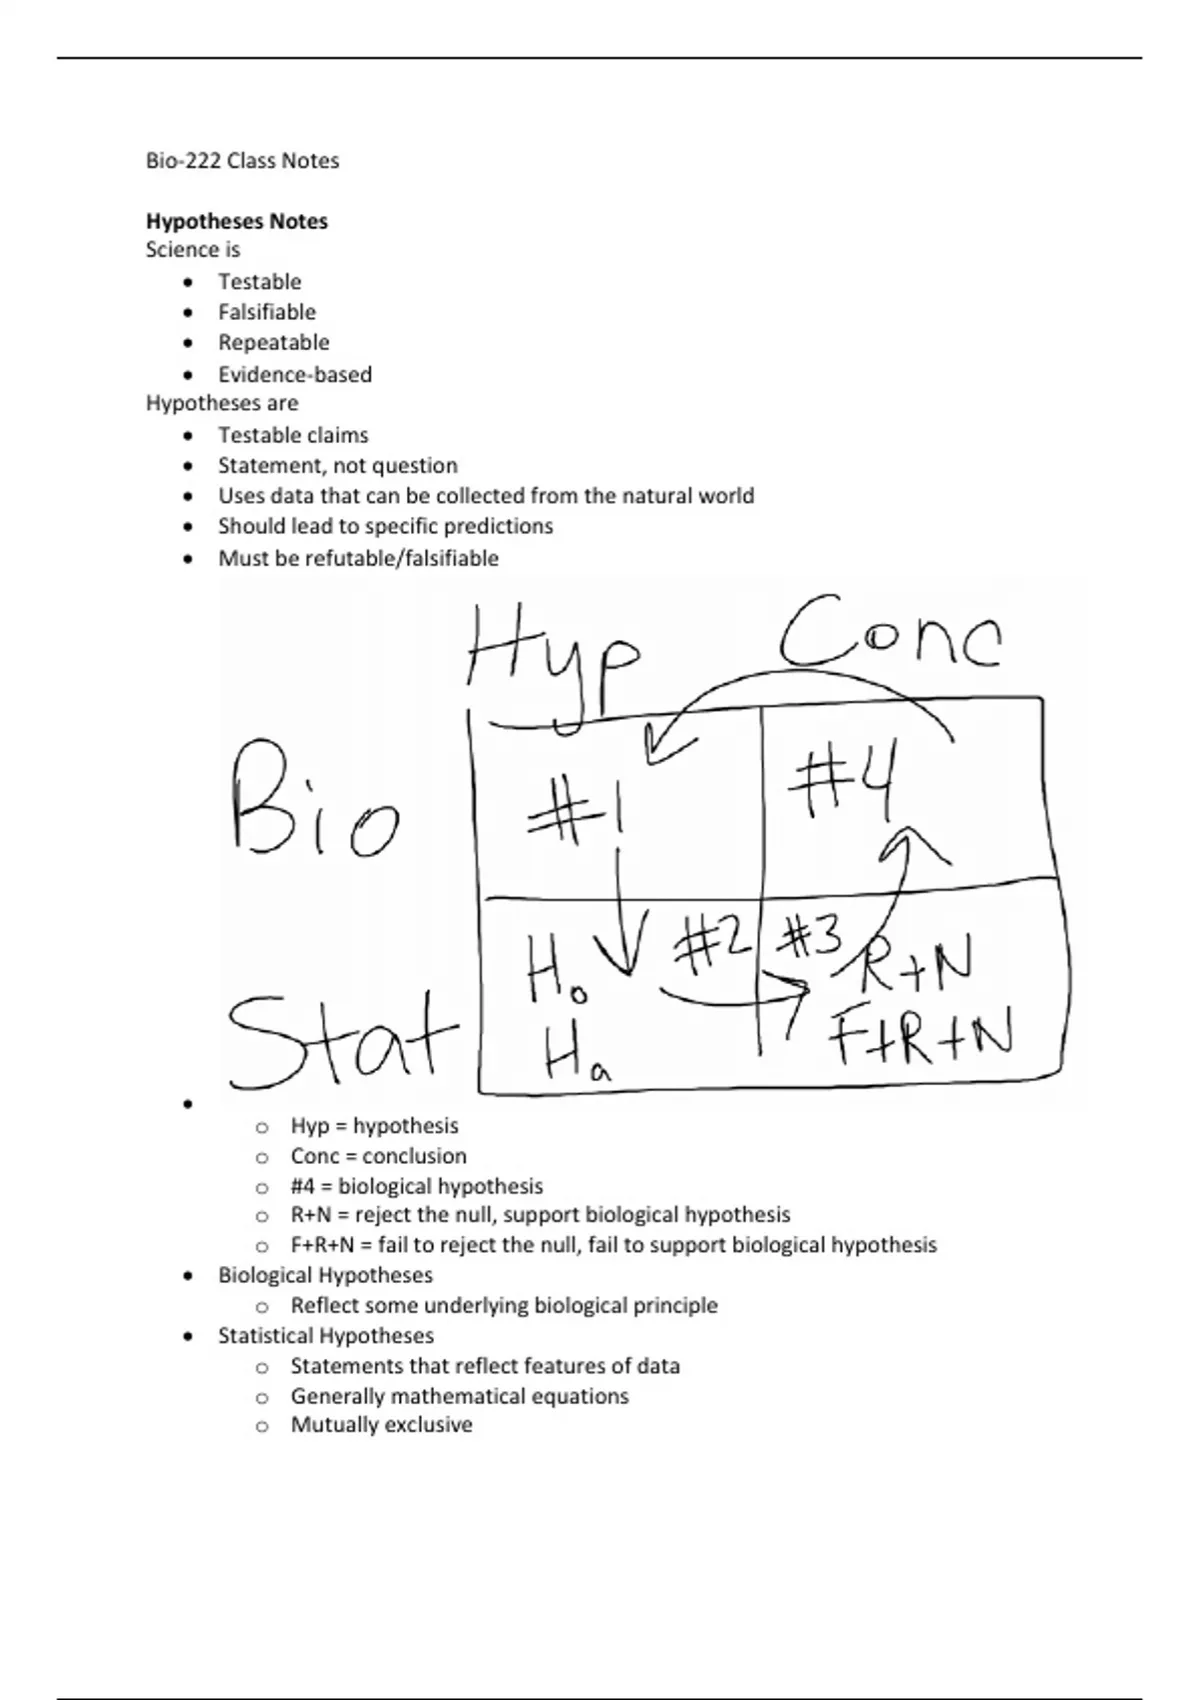 Bio-222 Class Notes
Hypotheses Notes
Science is
• Testable
• Falsifiable
• Repeatable
• Evidence-based
Hypotheses are
• Testable claims
• Statement, not question
• Uses data that can be collected from the natural world
• Should lead to specific predictions
• Must be refutable/falsifiable
Hyp Conc
Bio #1 #4
Stat Ho #2 #3 R+N
Ha F+R+N
•
o Hyp = hypothesis
o Conc = conclusion
o #4 = biological hypothesis
o R+N = reject the null, support biological hypothesis
o F+R+N = fail to reject the null, fail to support biological hypothesis
• Biological Hypotheses
o Reflect some underlying biological principle
• Statistical Hypotheses
o Statements that reflect features of data
o Generally mathematical equations
o Mutually exclusive